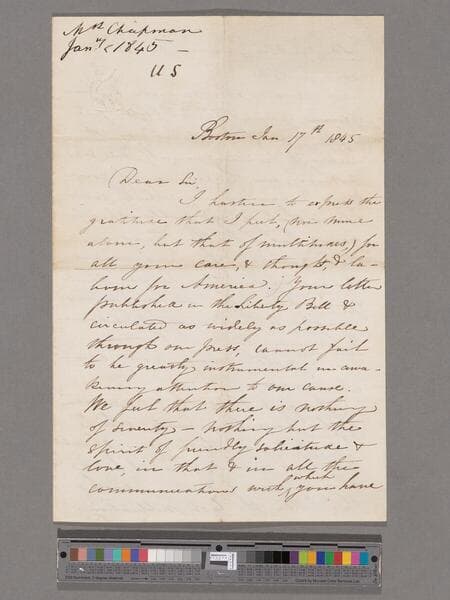 Mrs Chapman
Jany < 1845 —
U S
Boston Jan 17th 1845
Dear Sir,
I hasten to express the
gratitude that I feel, (nor mine
alone, but that of multitudes,) for
all your care, & thought, & la-
bour for America. Your letter
published in the Liberty Bell &
circulated as widely as possible
through our press, cannot fail
to be greatly instrumental in awa-
kening attention to our cause.
We feel that there is nothing
of severity — nothing but the
spirit of friendly solicitude &
love, in that & in all the
communications with which you have